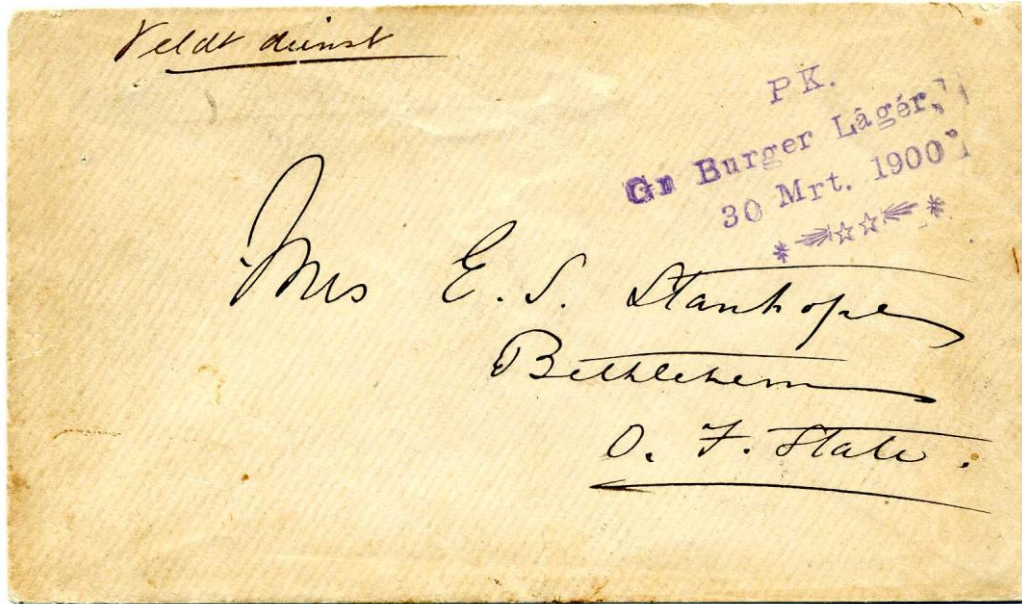 Veldt dienst
P K.
Gr Burger Lägér,
30 Mrt. 1900
Mrs E. S. Stanhope
Bethlehem
O. F. State.